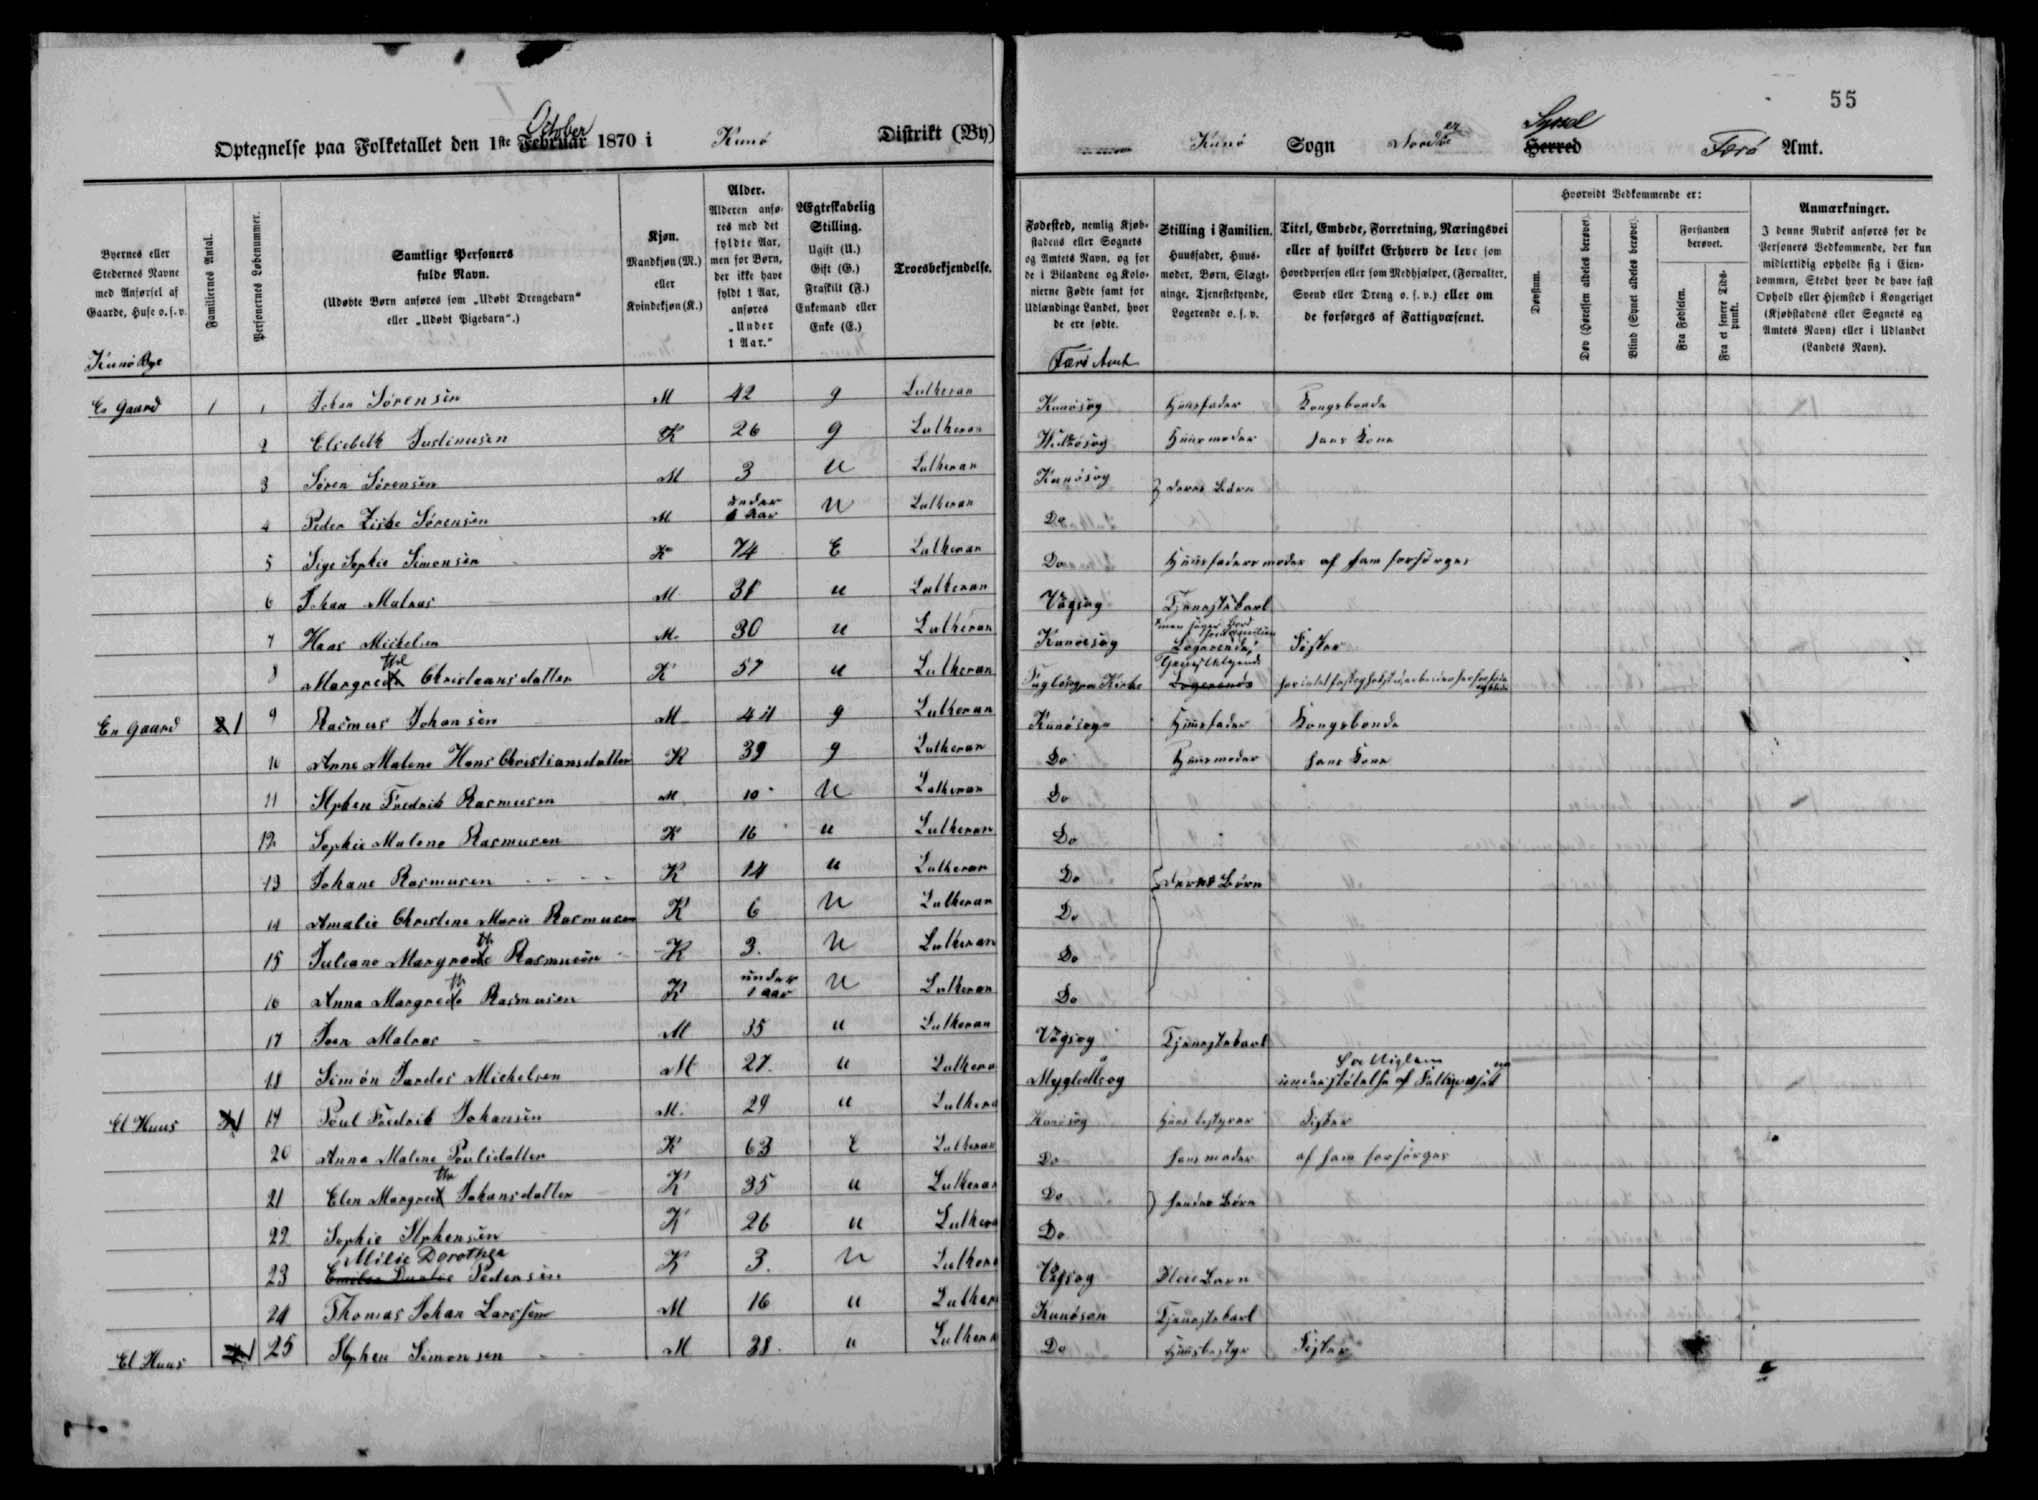 55
Optegnelse paa Folketallet den 1ste October Februar 1870 i Kunø Distrikt (By)
Kunø Sogn Norder Syssel Herred Færø Amt.
Byernes eller Stedernes Navne med Anførsel af Gaarde, Huse o. s. v.
Familiernes Antal.
Personernes Løbenummer.
Samtlige Personers fulde Navn.
(Udøbte Børn anføres som „Udøbt Drengebarn“ eller „Udøbt Pigebarn“.)
Kjøn.
Mandkjøn (M.) eller Kvindekjøn (K.)
Alder.
Alderen anføres med det fyldte Aar, men for Børn, der ikke have fyldt 1 Aar, anføres „Under 1 Aar.“
Ægteskabelig Stilling.
Ugift (U.) Gift (G.) Fraskilt (F.) Enkemand eller Enke (E.)
Troesbekjendelse.
Fødested, nemlig Kjøbstadens eller Sognets og Amtets Navn, og for de i Bilandene og Kolonierne Fødte samt for Udlændinge Landet, hvor de ere fødte.
Stilling i Familien.
Huusfader, Huusmoder, Børn, Slægtninge, Tjenestetyende, Logerende o. s. v.
Titel, Embede, Forretning, Næringsvei eller af hvilket Erhverv de leve som Hovedperson eller som Medhjælper, (Forvalter, Svend eller Dreng o. s. v.) eller om de forsørges af Fattigvæsenet.
Hvorvidt Vedkommende er:
Døvstum.
Døv (Hørelsen aldeles berøvet).
Blind (Synet aldeles berøvet).
Forstanden berøvet.
Fra Fødselen.
Fra et senere Tidspunkt.
Anmærkninger.
I denne Rubrik anføres for de Personers Vedkommende, der kun midlertidig opholde sig i Eiendommen, Stedet hvor de have fast Ophold eller Hjemsted i Kongeriget (Kjøbstadens eller Sognets og Amtets Navn) eller i Udlandet (Landets Navn).
Kunø Bye Færø Amt
En Gaard 1 1 Johan Sørensen M 42 g Lutheran Kunøsog Huusfader Kongsbonde
2 Elsebeth Justinusen K 26 g Lutheran Huusmoder hans Kone
3 Søren Sørensen M 3 U Lutheran Kunøsog deres Børn
4 Peder Ziske Sørensen M under 1 Aar U Lutheran Do
5 Sige Sophie Simonsen K 74 E Lutheran Do Huusfaders moder af ham forsørges
6 Johan Malnas M 31 u Lutheran Vågsog Tjenestekarl
7 Haas Mickelsen M 30 u Lutheran Kunøesog Logerende Fisker
8 Margrethe Christeansdatter K 57 u Lutheran Logerende
En Gaard 2 1 9 Rasmus Johansen M 44 g Lutheran Kunøsogn Huusfader Kongsbonde
10 Anne Malene Hans Christiansdatter K 39 g Lutheran Do Huusmoder hans Kone
11 Stphen Fredrik Rasmusen M 10 U Lutheran Do
12 Sophie Malene Rasmusen K 16 u Lutheran Do
13 Johane Rasmusen K 14 u Lutheran Do deres Børn
14 Amalie Christene Marie Rasmusen K 6 U Lutheran Do
15 Juliane Margrethe Rasmusen K 3. U Lutheran Do
16 Anna Margrethe Rasmusen K under 1 aar U Lutheran Do
17 Joen Malnas M 35 u Lutheran Vågsog Tjenestekarl
18 Simón Jardes Michelsen M 27. u Luthera understøttelse af
Et Huus 1 19 Poul Fredrik Johansen M. 29 u Luthera Kunøsog Huusbestyrer Fisker
20 Anna Malene Poulsdatter K 63 E Lutheran Do hans moder af ham forsørges
21 Elen Margrethe Johansdatter K 35 u Lutheran Do hendes Børn
22 Sophie Stphensen K 26 u Luthera Do
23 Milie Dorothea Pedersen K 3. U Luthera Vågsog Pleie Barn
24 Thomas Johan Larssen M 16 u Luthera Kunøson Tjenestekarl
Et Huus 1 25 Stphen Simonsen M 38. u Luthera Do Huusbestyr Fisker